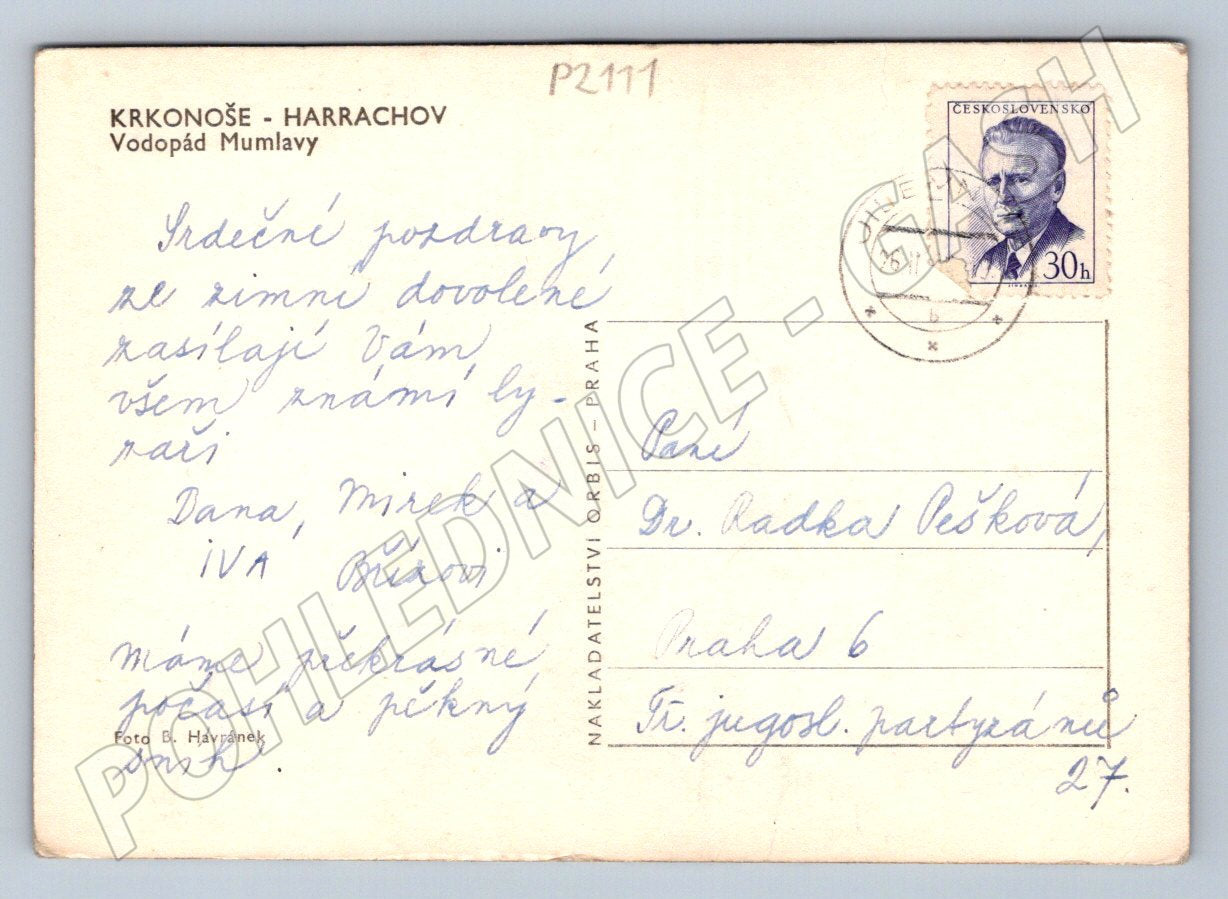 P2111
KRKONOŠE - HARRACHOV
Vodopád Mumlavy
ČESKOSLOVENSKO
30h
b
Srdečné pozdravy
ze zimní dovolené
zasílají Vám
všem známí ly-
žaři
Dana, Mirek a
IVA
Máme překrásné
počasí a pěkný
sníh.
Foto B. Havránek
NAKLADATELSTVÍ ORBIS - PRAHA
Paní
Dr. Radka Pešková,
Praha 6
Tř. jugosl. partyzánů
27.
POHLEDNICE - GASH